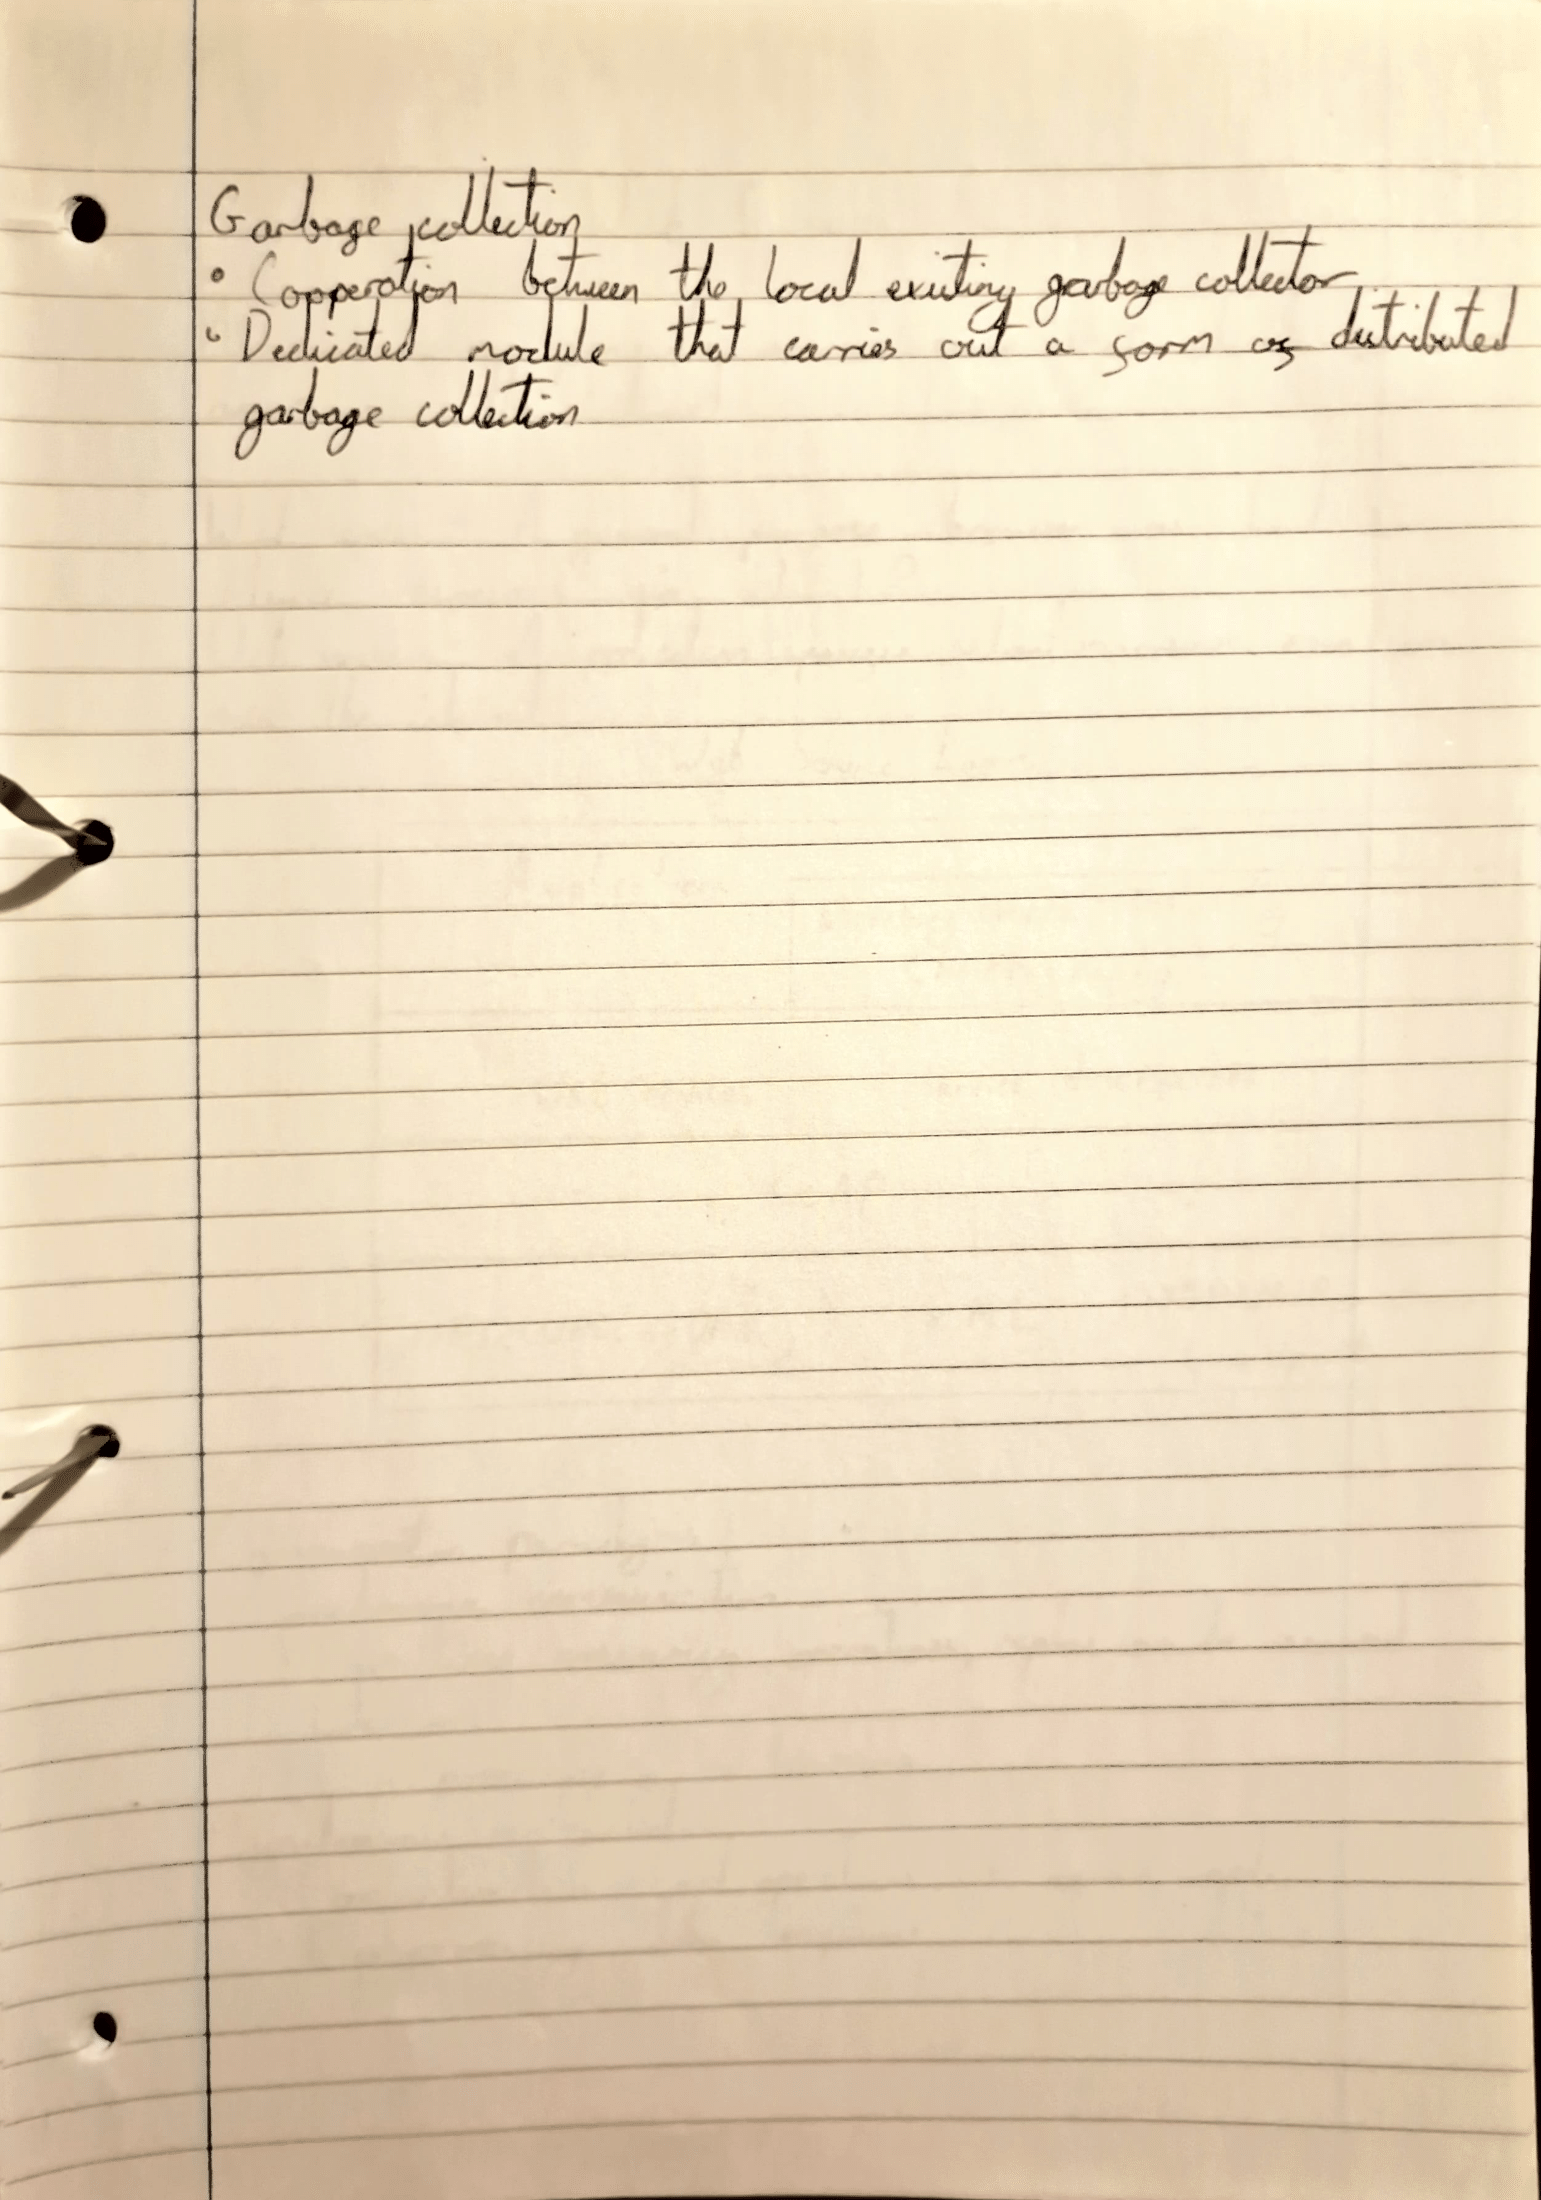 Garbage collection
• Copperation between the local existing garbage collector
• Dedicated module that carries out a form of distributed
garbage collection